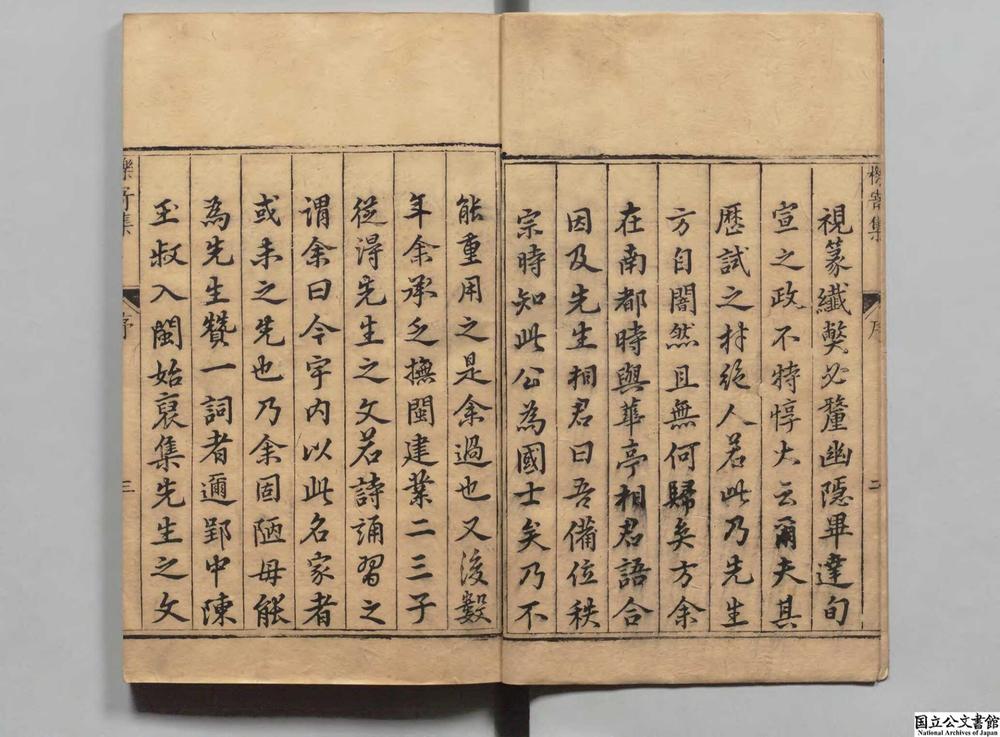 視篆纖弊必釐幽隱畢達旬
宣之政不特惇大云爾夫其
歷試之材絕人若此乃先生
方自闇然且無何歸矣方余
在南都時與華亭相君語合
因及先生相君曰吾備位秩
宗時知此公為國士矣乃不
能重用之是余過也又後數
年余承乏撫閩建業二三子
從得先生之文若詩誦習之
謂余曰今宇內以此名家者
或未之先也乃余固陋毋能
為先生贊一詞者邇郢中陳
玉叔入閩始裒集先生之文
序
二
集
序
三
国立公文書館
National Archives of Japan